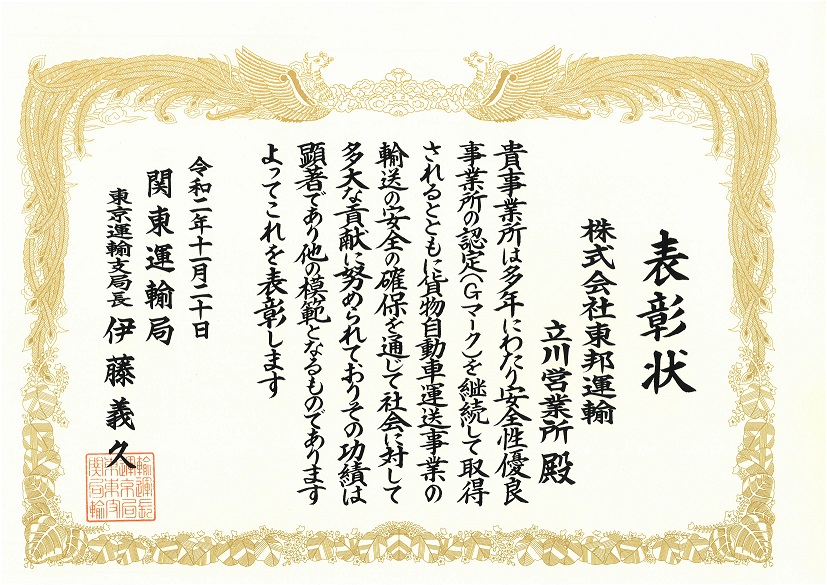 表彰状
株式会社東邦運輸
立川営業所 殿
貴事業所は多年にわたり安全性優良
事業所の認定(Gマーク)を継続して取得
されるとともに貨物自動車運送事業の
輸送の安全の確保を通じて社会に対して
多大な貢献に努められておりその功績は
顕著であり他の模範となるものであります
よってこれを表彰します
令和二年十一月二十日
関東運輸局
東京運輸支局長 伊藤義久